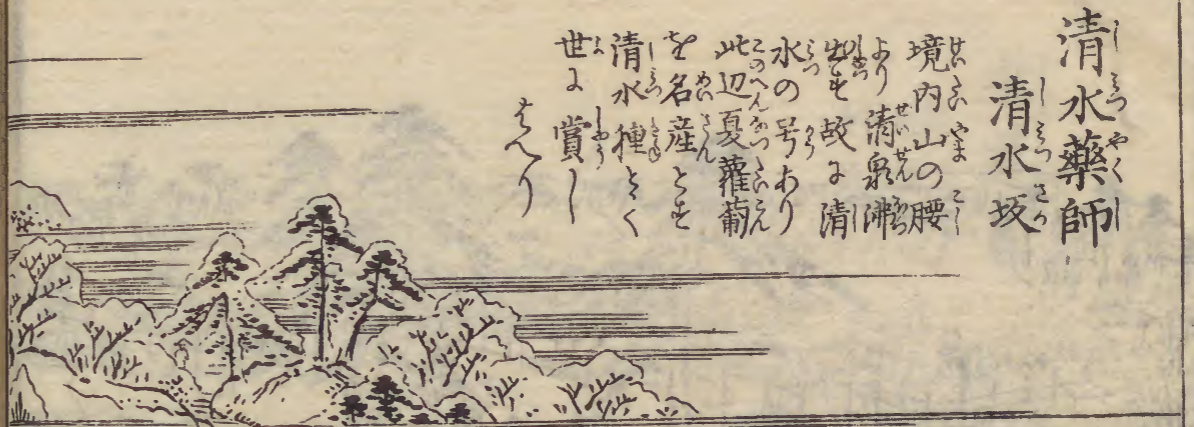 清水藥師
清水坂
境内山の腰
より清泉沸
出す故に清
水の号あり
此辺夏蘿蔔
を名産とす
清水種とて
世に賞し
あへり